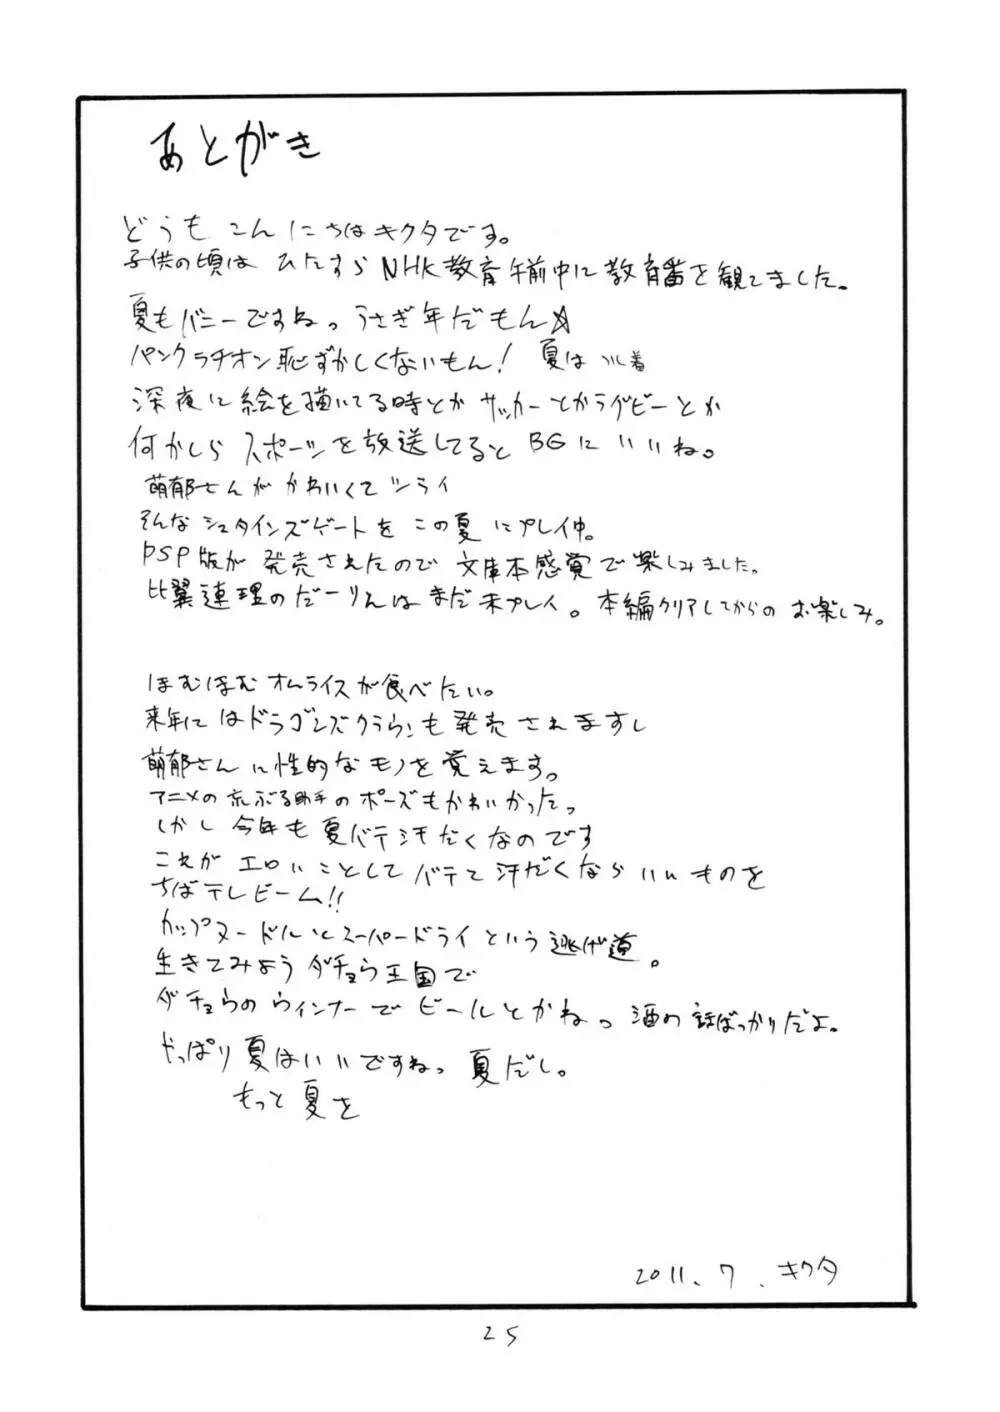 あとがき
どうもこんにちはキクタです。
子供の頃は ひたすらNHK教育午前中に教育番を観てました。
夏もバニーですねっ うさぎ年だもん☆
パンクラチオン恥ずかしくないもん! 夏は 着
深夜に絵を描いてる時とか サッカーとかラグビーとか
何かしら スポーツを放送してると BGにいいね。
萌郁さんが かわいくてツライ
そんな シュタインズゲートを この夏にプレイ中。
PSP版が 発売されたので 文庫本感覚で楽しみました。
比翼連理のだーりんは まだ未プレイ。本編クリアしてからの お楽しみ。
ほむほむオムライスが食べたい。
来年には ドラゴンズクラウンも発売されますし
萌郁さんに性的なモノを覚えます。
アニメの荒ぶる助手のポーズもかわいかったっ
しかし 今年も 夏バテ汗だくなのです
これが エロいこととしてバテて汗だくならいいものを
ちばテレビーム!!
カップヌードルとスーパードライという逃げ道。
生きてみよう ダチョウ王国で
ダチョウのウィンナーでビールとかねっ 酒の話ばっかりだよ。
やっぱり夏はいいですねっ 夏だし。
もっと夏を
2011.7.キクタ
25